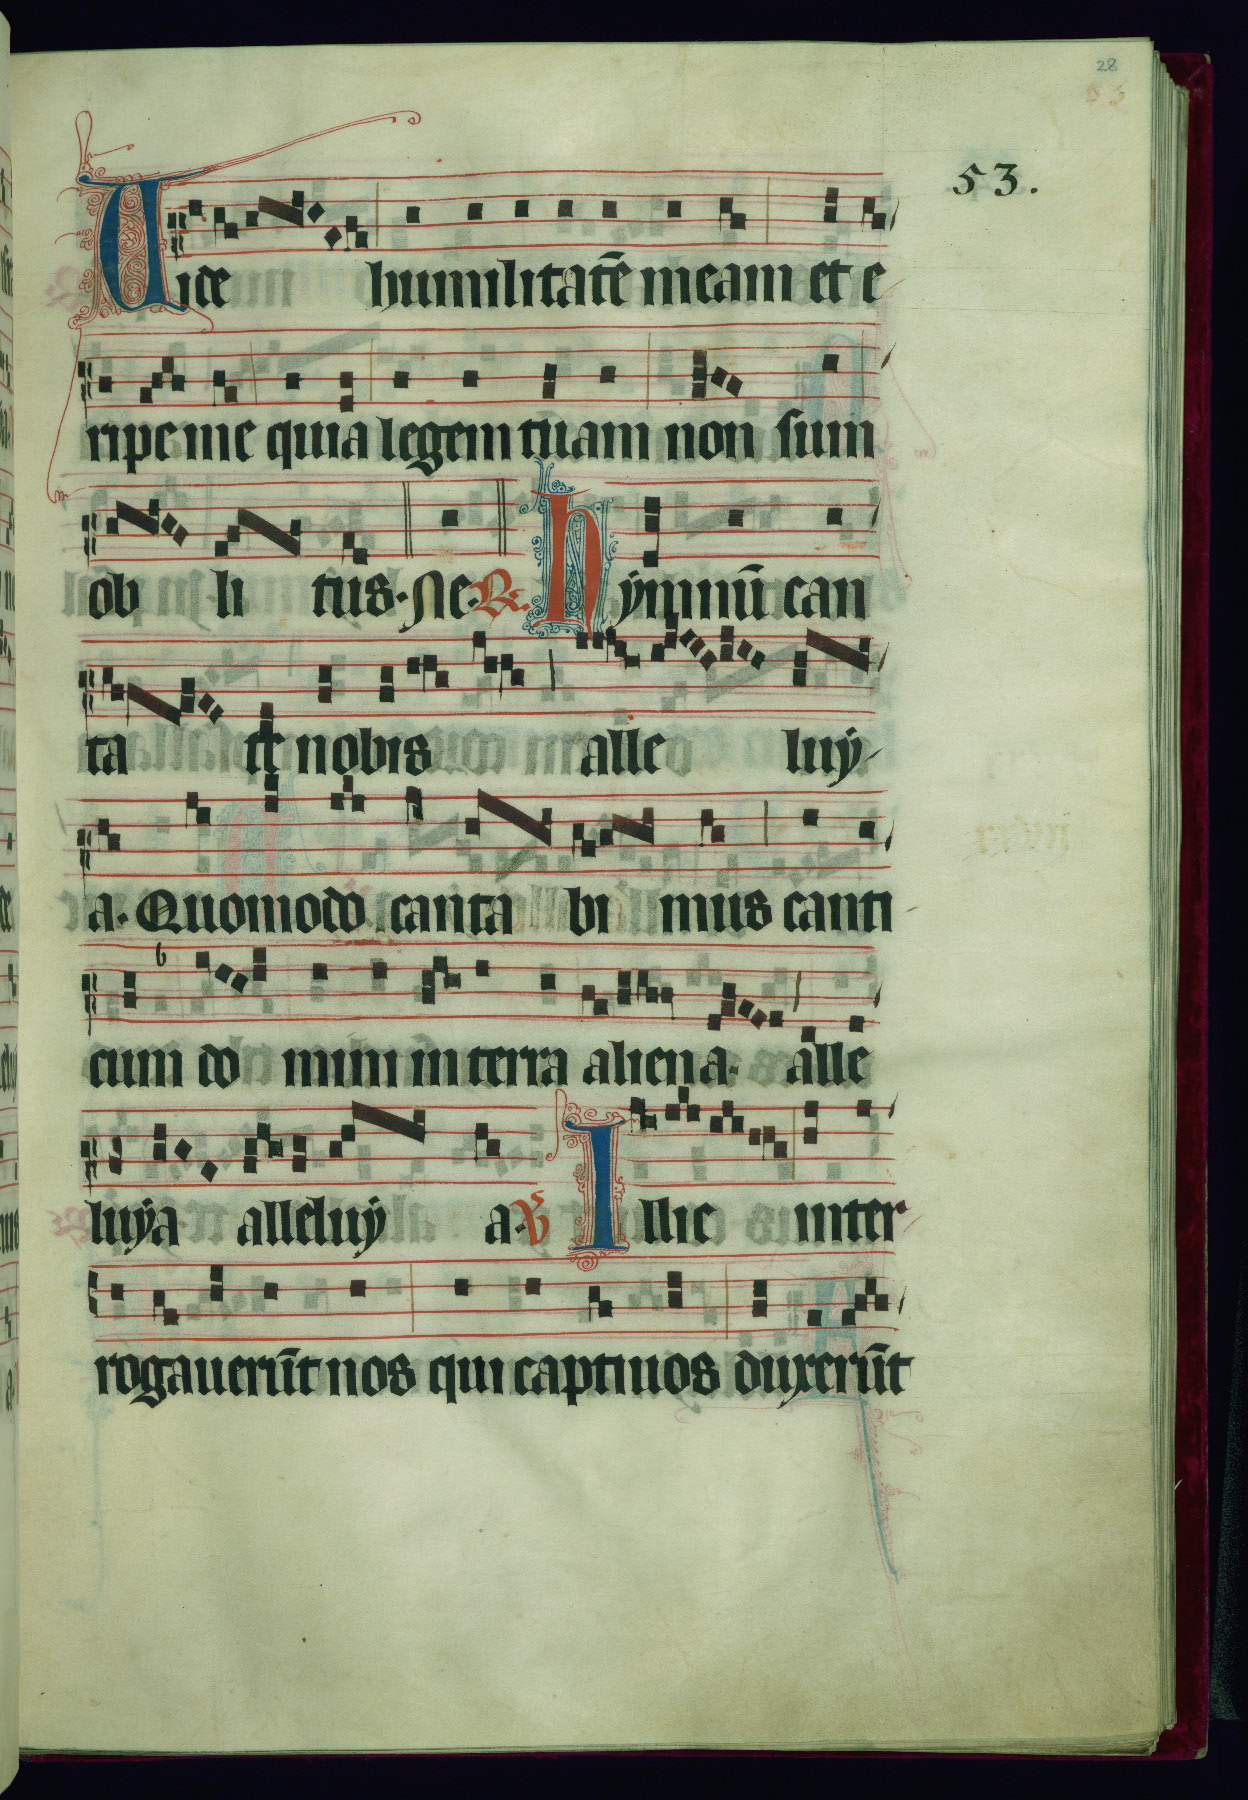 28
53.
Uide humilitatē meam et e
ripe me quia legem tuam non sum
ob li tus. Ne. R. hÿmnū can
ta te nobis alle luÿ
a. Quomodo canta bi mus canti
cum do mini in terra aliena. alle
luÿa alleluÿ a. V Illic inter
rogauerūt nos qui captiuos duxerūt